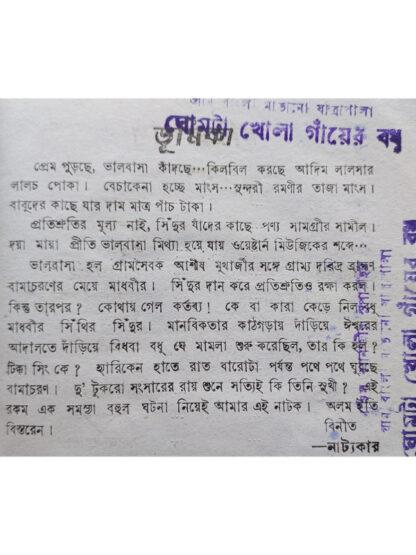 গ্রাম বাংলা মাতানো যাত্রাপালা
ঘোমটা খোলা গাঁয়ের বধু
ভূমিকা
প্রেম পুড়ছে, ভালবাসা কাঁদছে···কিলবিল করছে আদিম লালসার
লালচ পোকা। বেচাকেনা হচ্ছে মাংস···সুন্দরী রমণীর তাজা মাংস।
বাবুদের কাছে যার দাম মাত্র পাঁচ টাকা।
প্রতিশ্রুতির মূল্য নাই, সিঁদুর যাদের কাছে পণ্য সামগ্রীর সামীল।
দয়া মায়া প্রীতি ভালবাসা মিথ্যা হয়ে যায় ওয়েষ্টার্ন মিউজিকের শব্দে···
ভালবাসা হল গ্রামসেবক আশীষ মুখার্জীর সঙ্গে গ্রাম্য দরিদ্র ব্রাহ্মণ
বামাচরণের মেয়ে মাধবীর। সিঁদুর দান করে প্রতিশ্রুতিও রক্ষা করল।
কিন্তু তারপর? কোথায় গেল কর্তব্য! কে বা কারা কেড়ে নিল বধু
মাধবীর সিঁথির সিঁদুর। মানবিকতার কাঠগড়ায় দাঁড়িয়ে ঈশ্বরের
আদালতে দাঁড়িয়ে বিধবা বধূ যে মামলা শুরু করেছিল, তার কি হল?
টিক্কা সিং কে? হ্যারিকেন হাতে রাত বারোটা পর্যন্ত পথে পথে ঘুরছে
বামাচরণ। দু' টুকরো সংসারের রায় শুনে সত্যিই কি তিনি সুখী? এই
রকম এক সমস্যা বহুল ঘটনা নিয়েই আমার এই নাটক। অলম ইতি
বিস্তরেন।
বিনীত
—নাট্যকার
গ্রাম বাংলা মাতানো যাত্রাপালা
ঘোমটা খোলা গাঁয়ের বধু